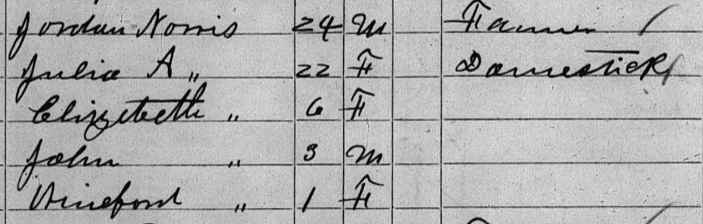 Jordan Norris 24 M Farmer
Julia A " 22 F Domestick
Elizebeth " 6 F
John " 3 M
Wineford " 1 F